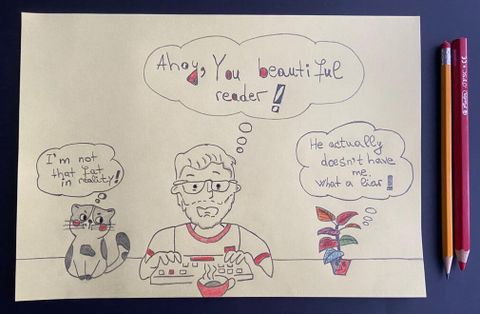 Ahoy, You beautiful
reader!
I'm not
that fat
in reality!
He actually
doesn't have
me.
What a liar!